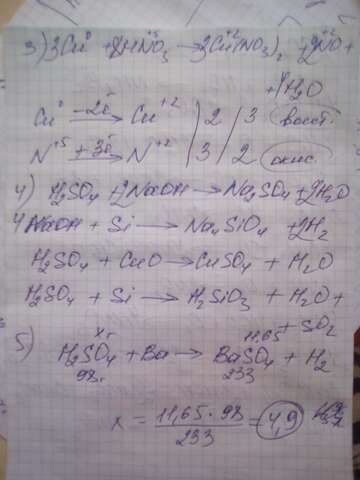 3) 3Cu⁰ + 8HN⁺⁵O₃ → 3Cu⁺²(NO₃)₂ + 2N⁺²O +
+ 4H₂O
Cu⁰ —2ē→ Cu⁺² | 2 | 3 восст
N⁺⁵ +3ē→ N⁺² | 3 | 2 окис
4) H₂SO₄ + 2NaOH → Na₂SO₄ + 2H₂O
4NaOH + Si → Na₄SiO₄ + 2H₂
H₂SO₄ + CuO → CuSO₄ + H₂O
H₂SO₄ + Si → H₂SiO₃ + H₂O +
+ SO₂
5) xг 11,65
H₂SO₄ + Ba → BaSO₄ + H₂
98г 233
x = 11,65 · 98 / 233 = 4,9